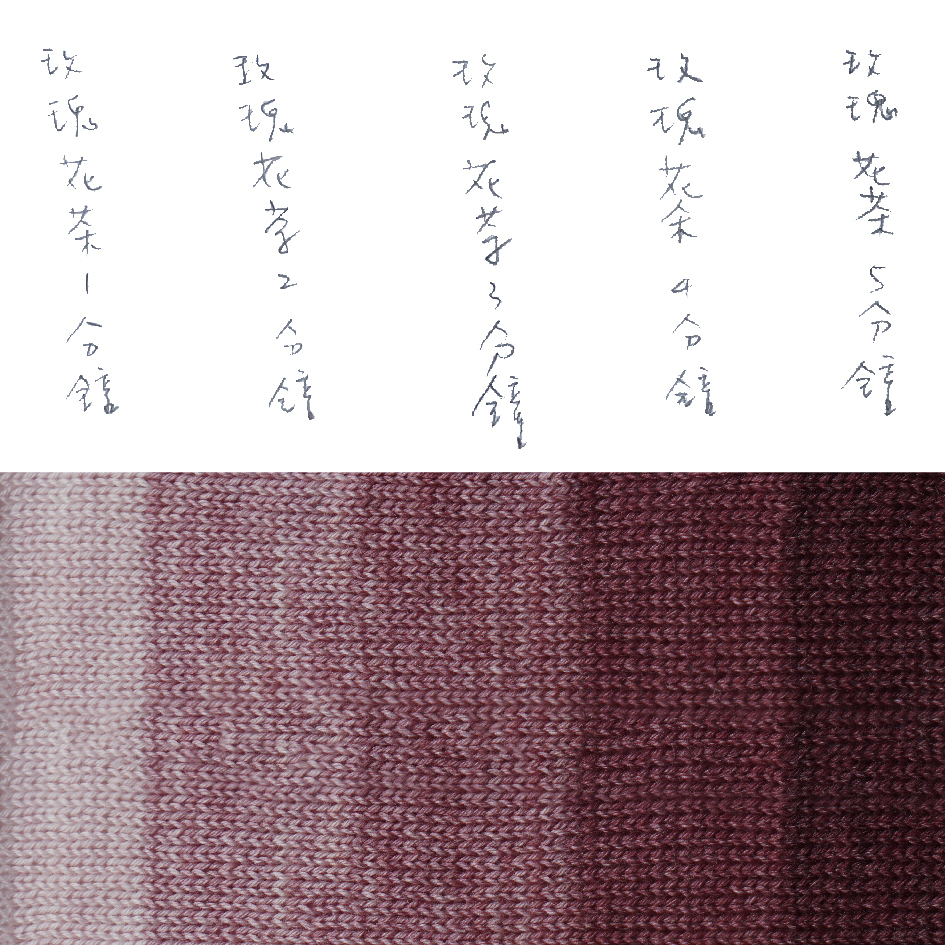 玫瑰花茶1分鐘
玫瑰花茶2分鐘
玫瑰花茶3分鐘
玫瑰花茶4分鐘
玫瑰花茶5分鐘